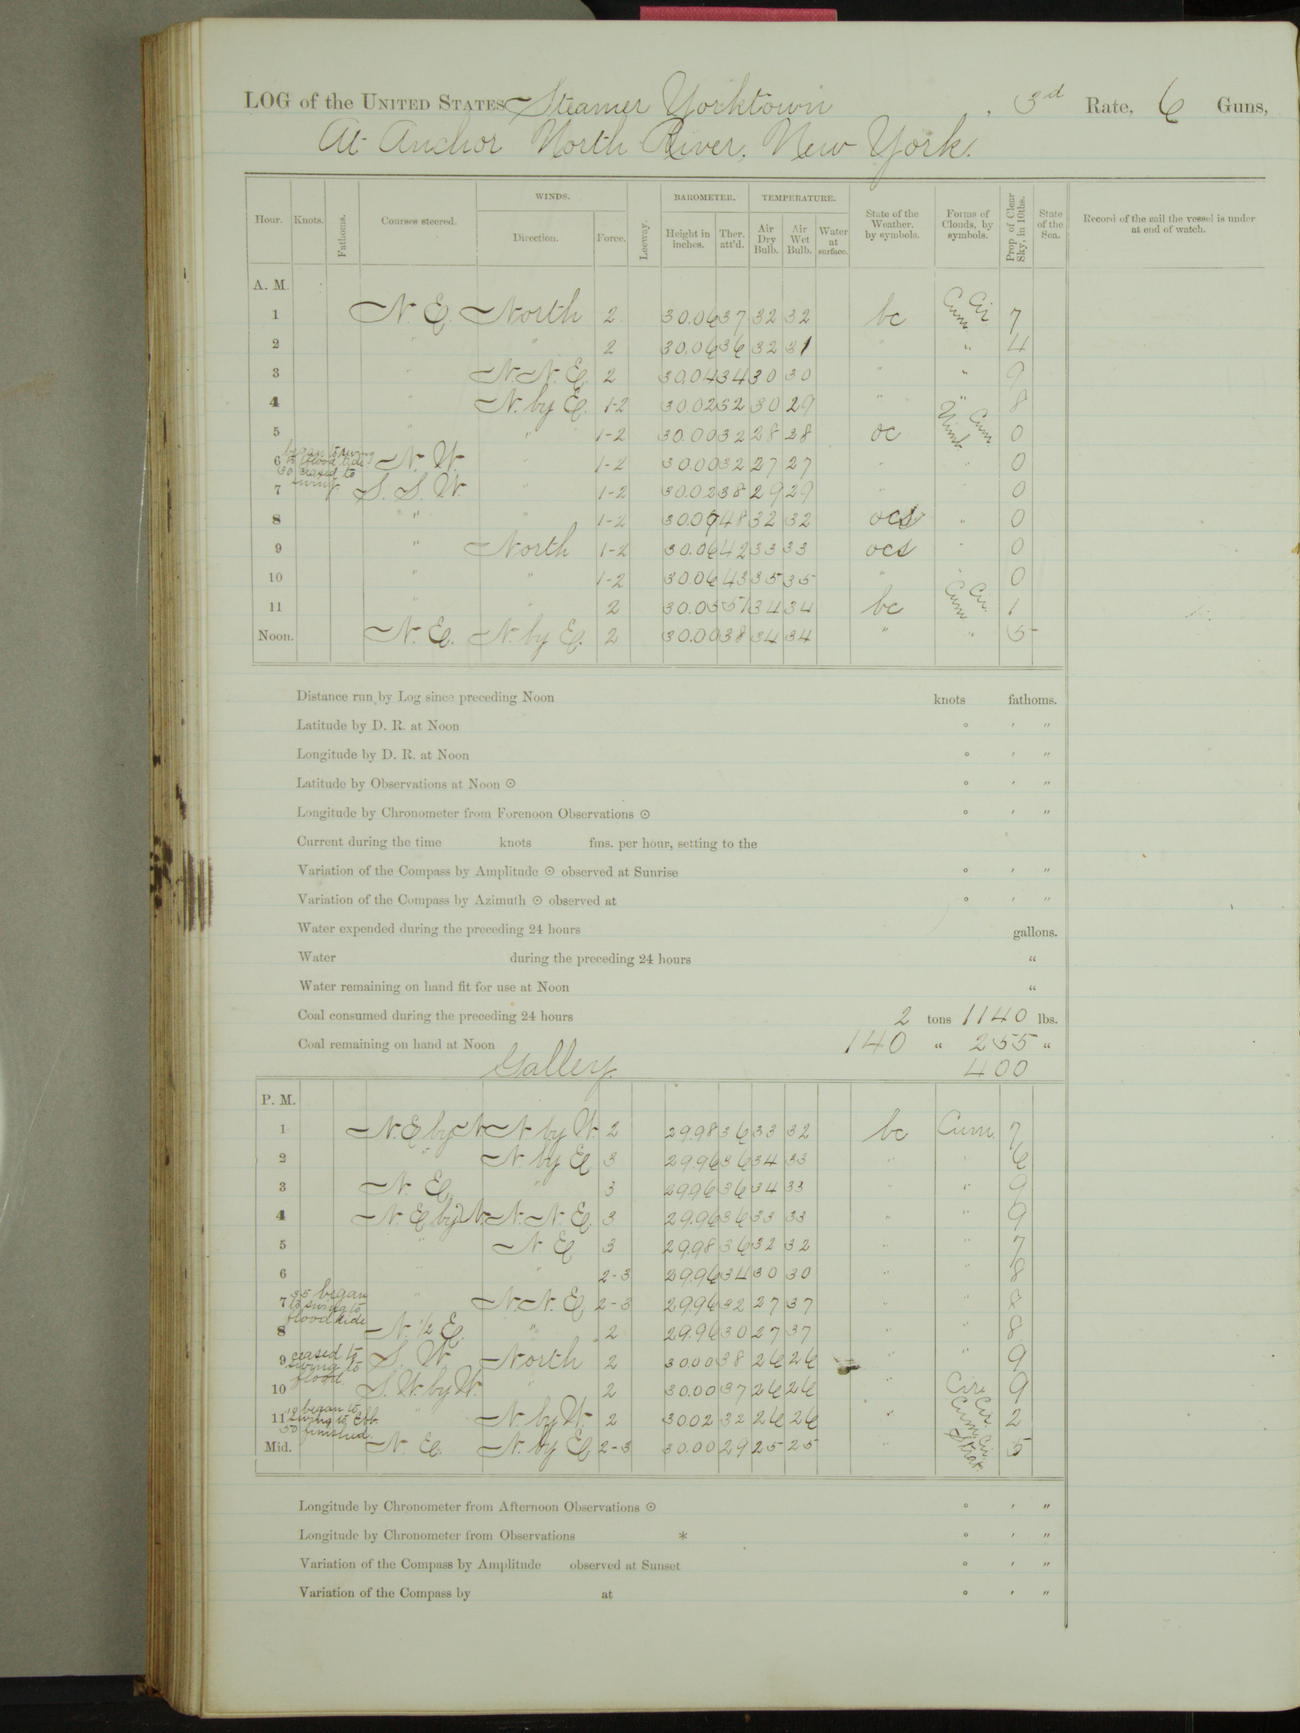 LOG of the UNITED STATES Steamer Yorktown, 3rd Rate, 6 Guns,
At Anchor North River, New York.
Hour. Knots. Fathoms. Courses steered. WINDS. Direction. Force. Leeway. BAROMETER. Height in inches. Ther. att'd. TEMPERATURE. Air Dry Bulb. Air Wet Bulb. Water at surface. State of the Weather, by symbols. Forms of Clouds, by symbols. Prop of Clear Sky, in 10ths. State of the Sea. Record of the sail the vessel is under at end of watch.
A. M.
1 N. E. North 2 30.06 37 32 32 bc Cum Cir 7
2 " " 2 30.06 36 32 31 " " 4
3 " N. N. E. 2 30.04 34 30 30 " " 9
4 N. by E. 1-2 30.02 32 30 29 " " 8
5 " " 1-2 30.00 32 28 28 oc Nimb Cum 0
6 began to swing to flood tide N. W. " 1-2 30.00 32 27 27 " " 0
30 ceased to swing
7 S. S. W. " 1-2 30.02 38 29 29 " " 0
8 " " 1-2 30.07 48 32 32 ocs " 0
9 " North 1-2 30.06 42 33 33 ocs " 0
10 " " 1-2 30.06 43 35 35 " " 0
11 " " 2 30.05 51 34 34 bc Cum Cir 1
Noon. N. E. N. by E. 2 30.00 38 34 34 " " 5
Distance run by Log since preceding Noon knots fathoms.
Latitude by D. R. at Noon ° ′ ″
Longitude by D. R. at Noon ° ′ ″
Latitude by Observations at Noon ☉ ° ′ ″
Longitude by Chronometer from Forenoon Observations ☉ ° ′ ″
Current during the time knots fms. per hour, setting to the
Variation of the Compass by Amplitude ☉ observed at Sunrise ° ′ ″
Variation of the Compass by Azimuth ☉ observed at ° ′ ″
Water expended during the preceding 24 hours gallons.
Water during the preceding 24 hours "
Water remaining on hand fit for use at Noon "
Coal consumed during the preceding 24 hours 2 tons 1140 lbs.
Coal remaining on hand at Noon 140 " 255 "
Galley 400
P. M.
1 N. E. by N. N by W. 2 29.98 36 33 32 bc Cum 7
2 " N. by E 3 29.96 36 34 33 " " 6
3 N. E. " 3 29.96 36 34 33 " " 9
4 N. E by N. N. N. E. 3 29.96 36 33 33 " " 9
5 " N. E 3 29.98 36 32 32 " " 7
6 " " 2-3 29.96 34 30 30 " " 8
7 35 began to swing to flood tide " N. N. E. 2-3 29.96 32 27 37 " " 8
8 N. 1/2 E. " 2 29.96 30 27 37 " " 8
9 ceased to swing to flood. S. W. North 2 30.00 38 26 26 " " 9
10 S. W. by W. " 2 30.00 37 26 26 " Cir. 9
11 began to swing to Ebb " N. by W. 2 30.02 32 26 26 " Cum Cir. 2
50 finished.
Mid. N. E. N. by E 2-3 30.00 29 25 25 " Cir Strat 5
Longitude by Chronometer from Afternoon Observations ☉ ° ′ ″
Longitude by Chronometer from Observations * ° ′ ″
Variation of the Compass by Amplitude observed at Sunset ° ′ ″
Variation of the Compass by at ° ′ ″